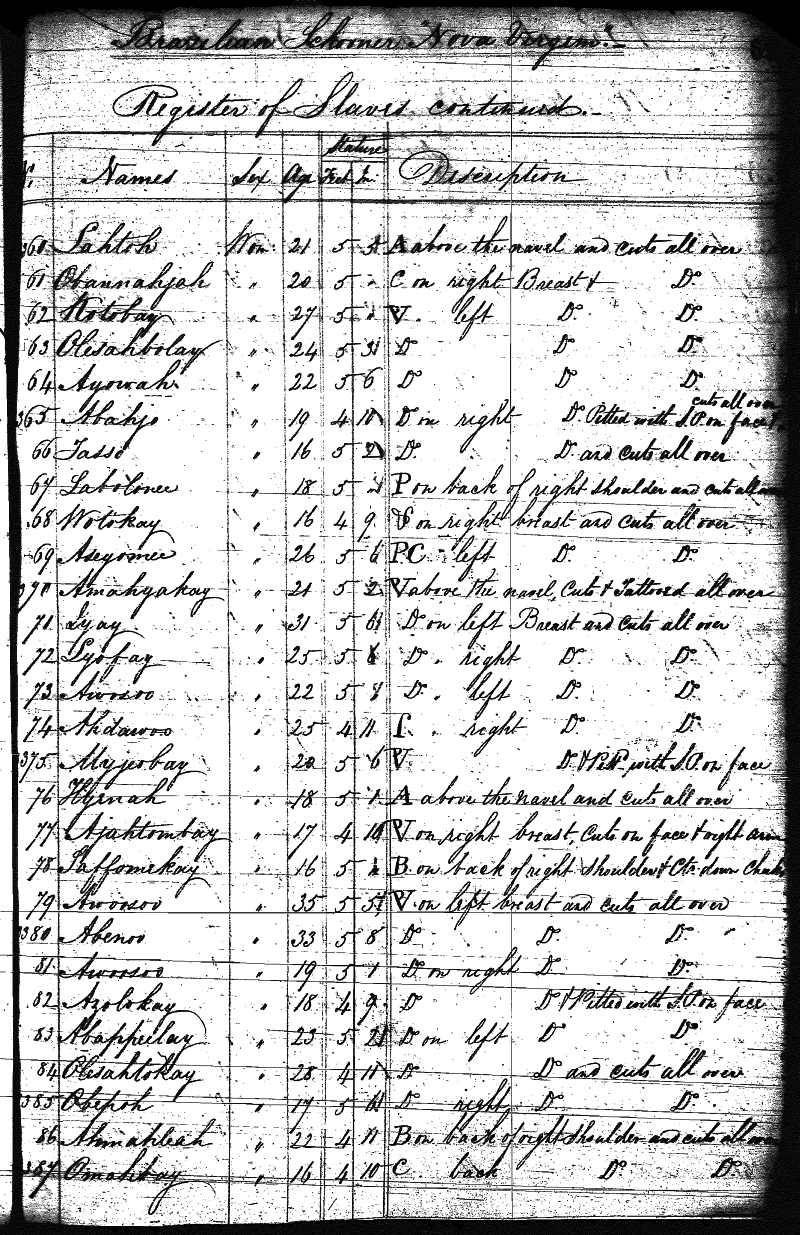 Brazilian Schooner "Nova Virgem"
Register of Slaves continued.
Stature
No. Names Sex Age Feet In. Description
360 Lahtoh Wom 21 5 A above the navel and cuts all over
61 Obannahjah " 20 5 " C on right Breast & Do
62 Kotobay " 27 5 " V. left Do Do
63 Olesahbolay " 24 5 3½ Do Do Do
64 Ayowah " 22 5 6 Do Do Do
cuts all over
365 Abahjo " 19 4 10 Do on right Do Pitted with S.P. on face &
66 Jasso " 16 5 2 Do Do and cuts all over
67 Labolonee " 18 5 P on back of right shoulder and cuts all over
68 Wotokay " 16 4 9 on right breast and cuts all over
69 Aseyomee " 26 5 6 PC " left Do Do
370 Amahyakay " 21 5 2 V above the navel, Cuts & Tattooed all over
71 Iyay " 31 5 6½ Do on left Breast and cuts all over
72 Iyofay " 25 5 Do " right Do Do
73 Awosoo " 22 5 Do " left Do Do
74 Ahdawoo " 25 4 11 " right Do Do
375 Myjeobay " 20 5 6 V Do & Pitd. with S.P. on face
76 Hyenah " 18 5 1 A above the navel and cuts all over
77 Ajahtombay " 17 4 10 V on right breast, Cuts on face & right arm
78 Saffomekay " 16 5 B. on back of right Shoulder & Cts. down Cheeks
79 Awoosoo " 35 5 V. on left breast and cuts all over
380 Abenoo " 33 5 8 Do Do Do
81 Awoosoo " 19 5 1 Do on right Do Do
82 Azolokay " 18 4 9 Do Do & Pitted with S.P. on face
83 Abappeelay " 23 5 2½ Do on left Do Do
84 Olesahtokay " 28 4 11 Do Do and cuts all over
385 Obepoh " 17 5 Do right Do Do
86 Ahmahleah " 22 4 11 B on back of right shoulder and cuts all over
387 Omahbay " 16 4 10 C. back Do Do